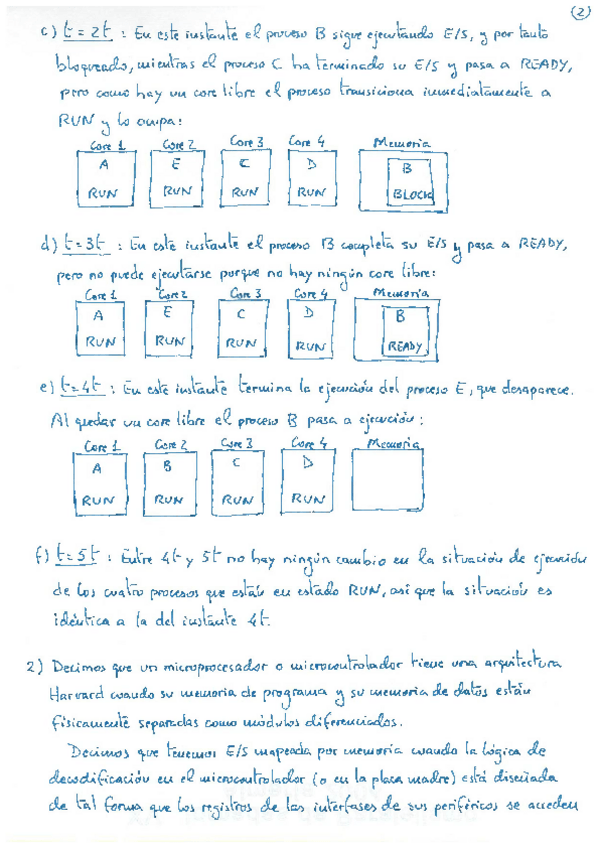 (2)
c) t=2t : En este instante el proceso B sigue ejecutando E/S, y por tanto
bloqueado, mientras el proceso C ha terminado su E/S y pasa a READY,
pero como hay un core libre el proceso transiciona inmediatamente a
RUN y lo ocupa:
Core 1 Core 2 Core 3 Core 4 Memoria
A E C D B
RUN RUN RUN RUN BLOCK
d) t=3t : En este instante el proceso B completa su E/S y pasa a READY,
pero no puede ejecutarse porque no hay ningún core libre:
Core 1 Core 2 Core 3 Core 4 Memoria
A E C D B
RUN RUN RUN RUN READY
e) t=4t : En este instante termina la ejecución del proceso E, que desaparece.
Al quedar un core libre el proceso B pasa a ejecución:
Core 1 Core 2 Core 3 Core 4 Memoria
A B C D
RUN RUN RUN RUN
f) t=5t : Entre 4t y 5t no hay ningún cambio en la situación de ejecución
de los cuatro procesos que están en estado RUN, así que la situación es
idéntica a la del instante 4t.
2) Decimos que un microprocesador o microcontrolador tiene una arquitectura
Harvard cuando su memoria de programa y su memoria de datos están
físicamente separadas como módulos diferenciados.
Decimos que tenemos E/S mapeada por memoria cuando la lógica de
decodificación en el microcontrolador (o en la placa madre) está diseñada
de tal forma que los registros de las interfases de sus periféricos se acceden